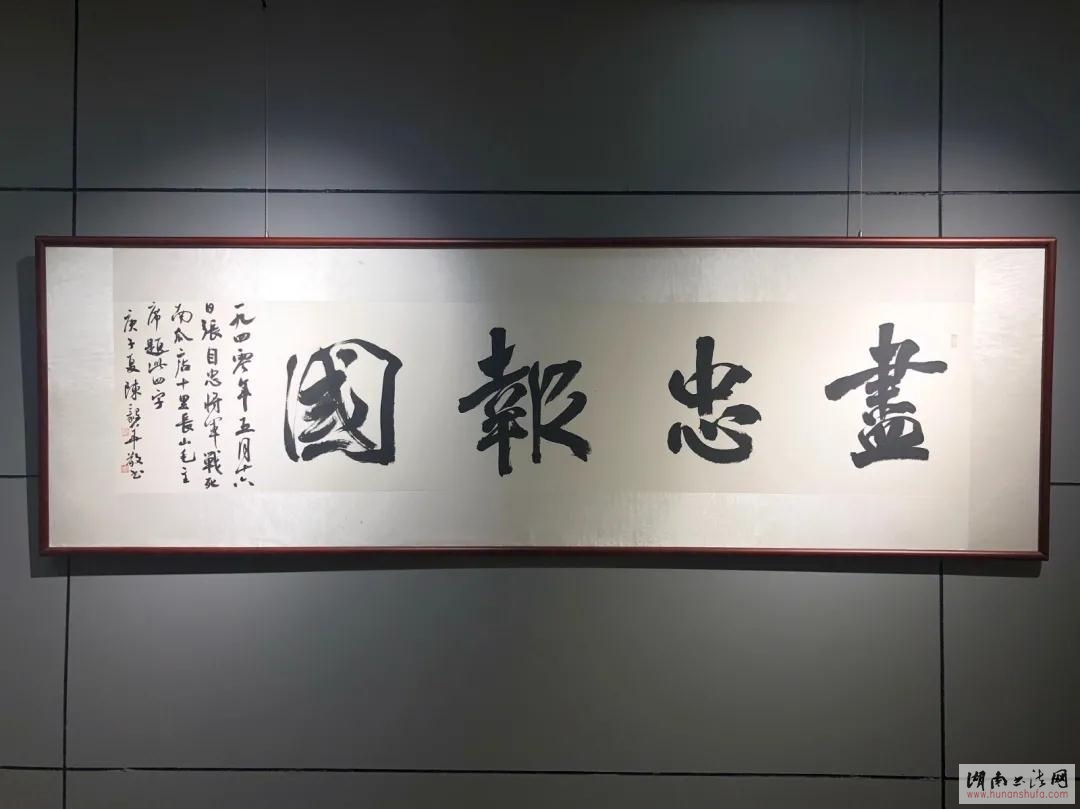 盡忠報國
一九四零年五月十六
日張自忠将軍戰死
南瓜店十里長山毛主
席題此四字
庚子夏陳敬书
湖南书法网
www.hunanshufa.com